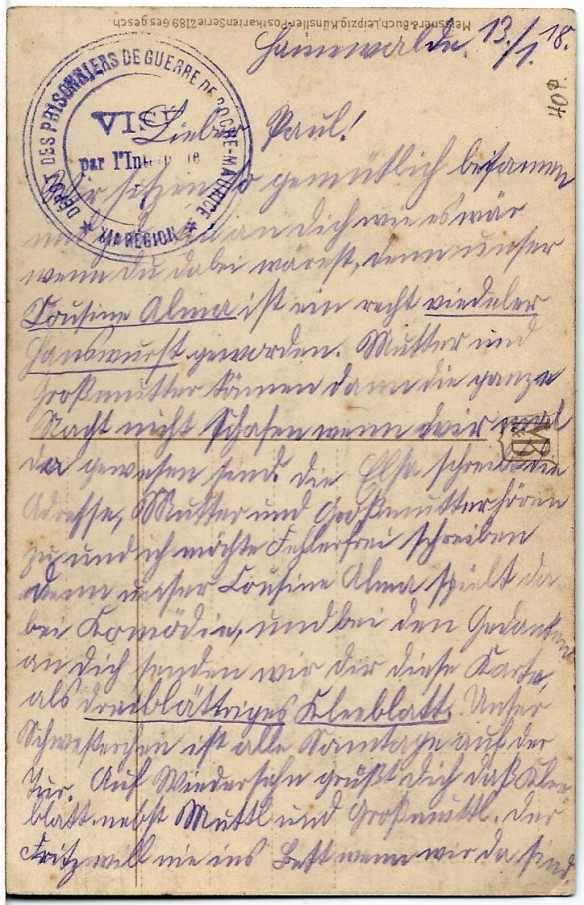 Meissner & Buch, Leipzig. Künstler-Postkarten Serie 2189 Ges. gesch.
Hainewalde. 13./1. 18.
408.
DÉPÔT DES PRISONNIERS DE GUERRE DE ROCHE-MAURICE
XIe RÉGION
VISÉ
par l'In
Lieber Paul!
Wir sitzen so gemütlich beisamen
und an Dich wie es wär
wenn Du dabei wärest, denn unser
Cousine Alma ist ein recht viedeler
Hanswurst geworden. Mutter und
Großmutter können dann die ganze
Nacht nicht schafen wenn wir mal
da gewesen sind. die Elsa schreibt die
Adresse, Mutter und Großmutter hören
zu und ich möchte Fehlerfrei schreiben
denn unser Cousine Alma spielt da
bei Komödie, und bei den Gedanken
an Dich senden wir dir diese Karte,
als dreiblättriges Kleeblatt. Unser
Schwesterchen ist alle Sonntage auf der
Tur. Auf Wiedersehn grüßt Dich daß Klee-
blatt nebst Muttl und Großmuttl. Der
Fritz will nie ins Bett wenn wir da sind.
MB